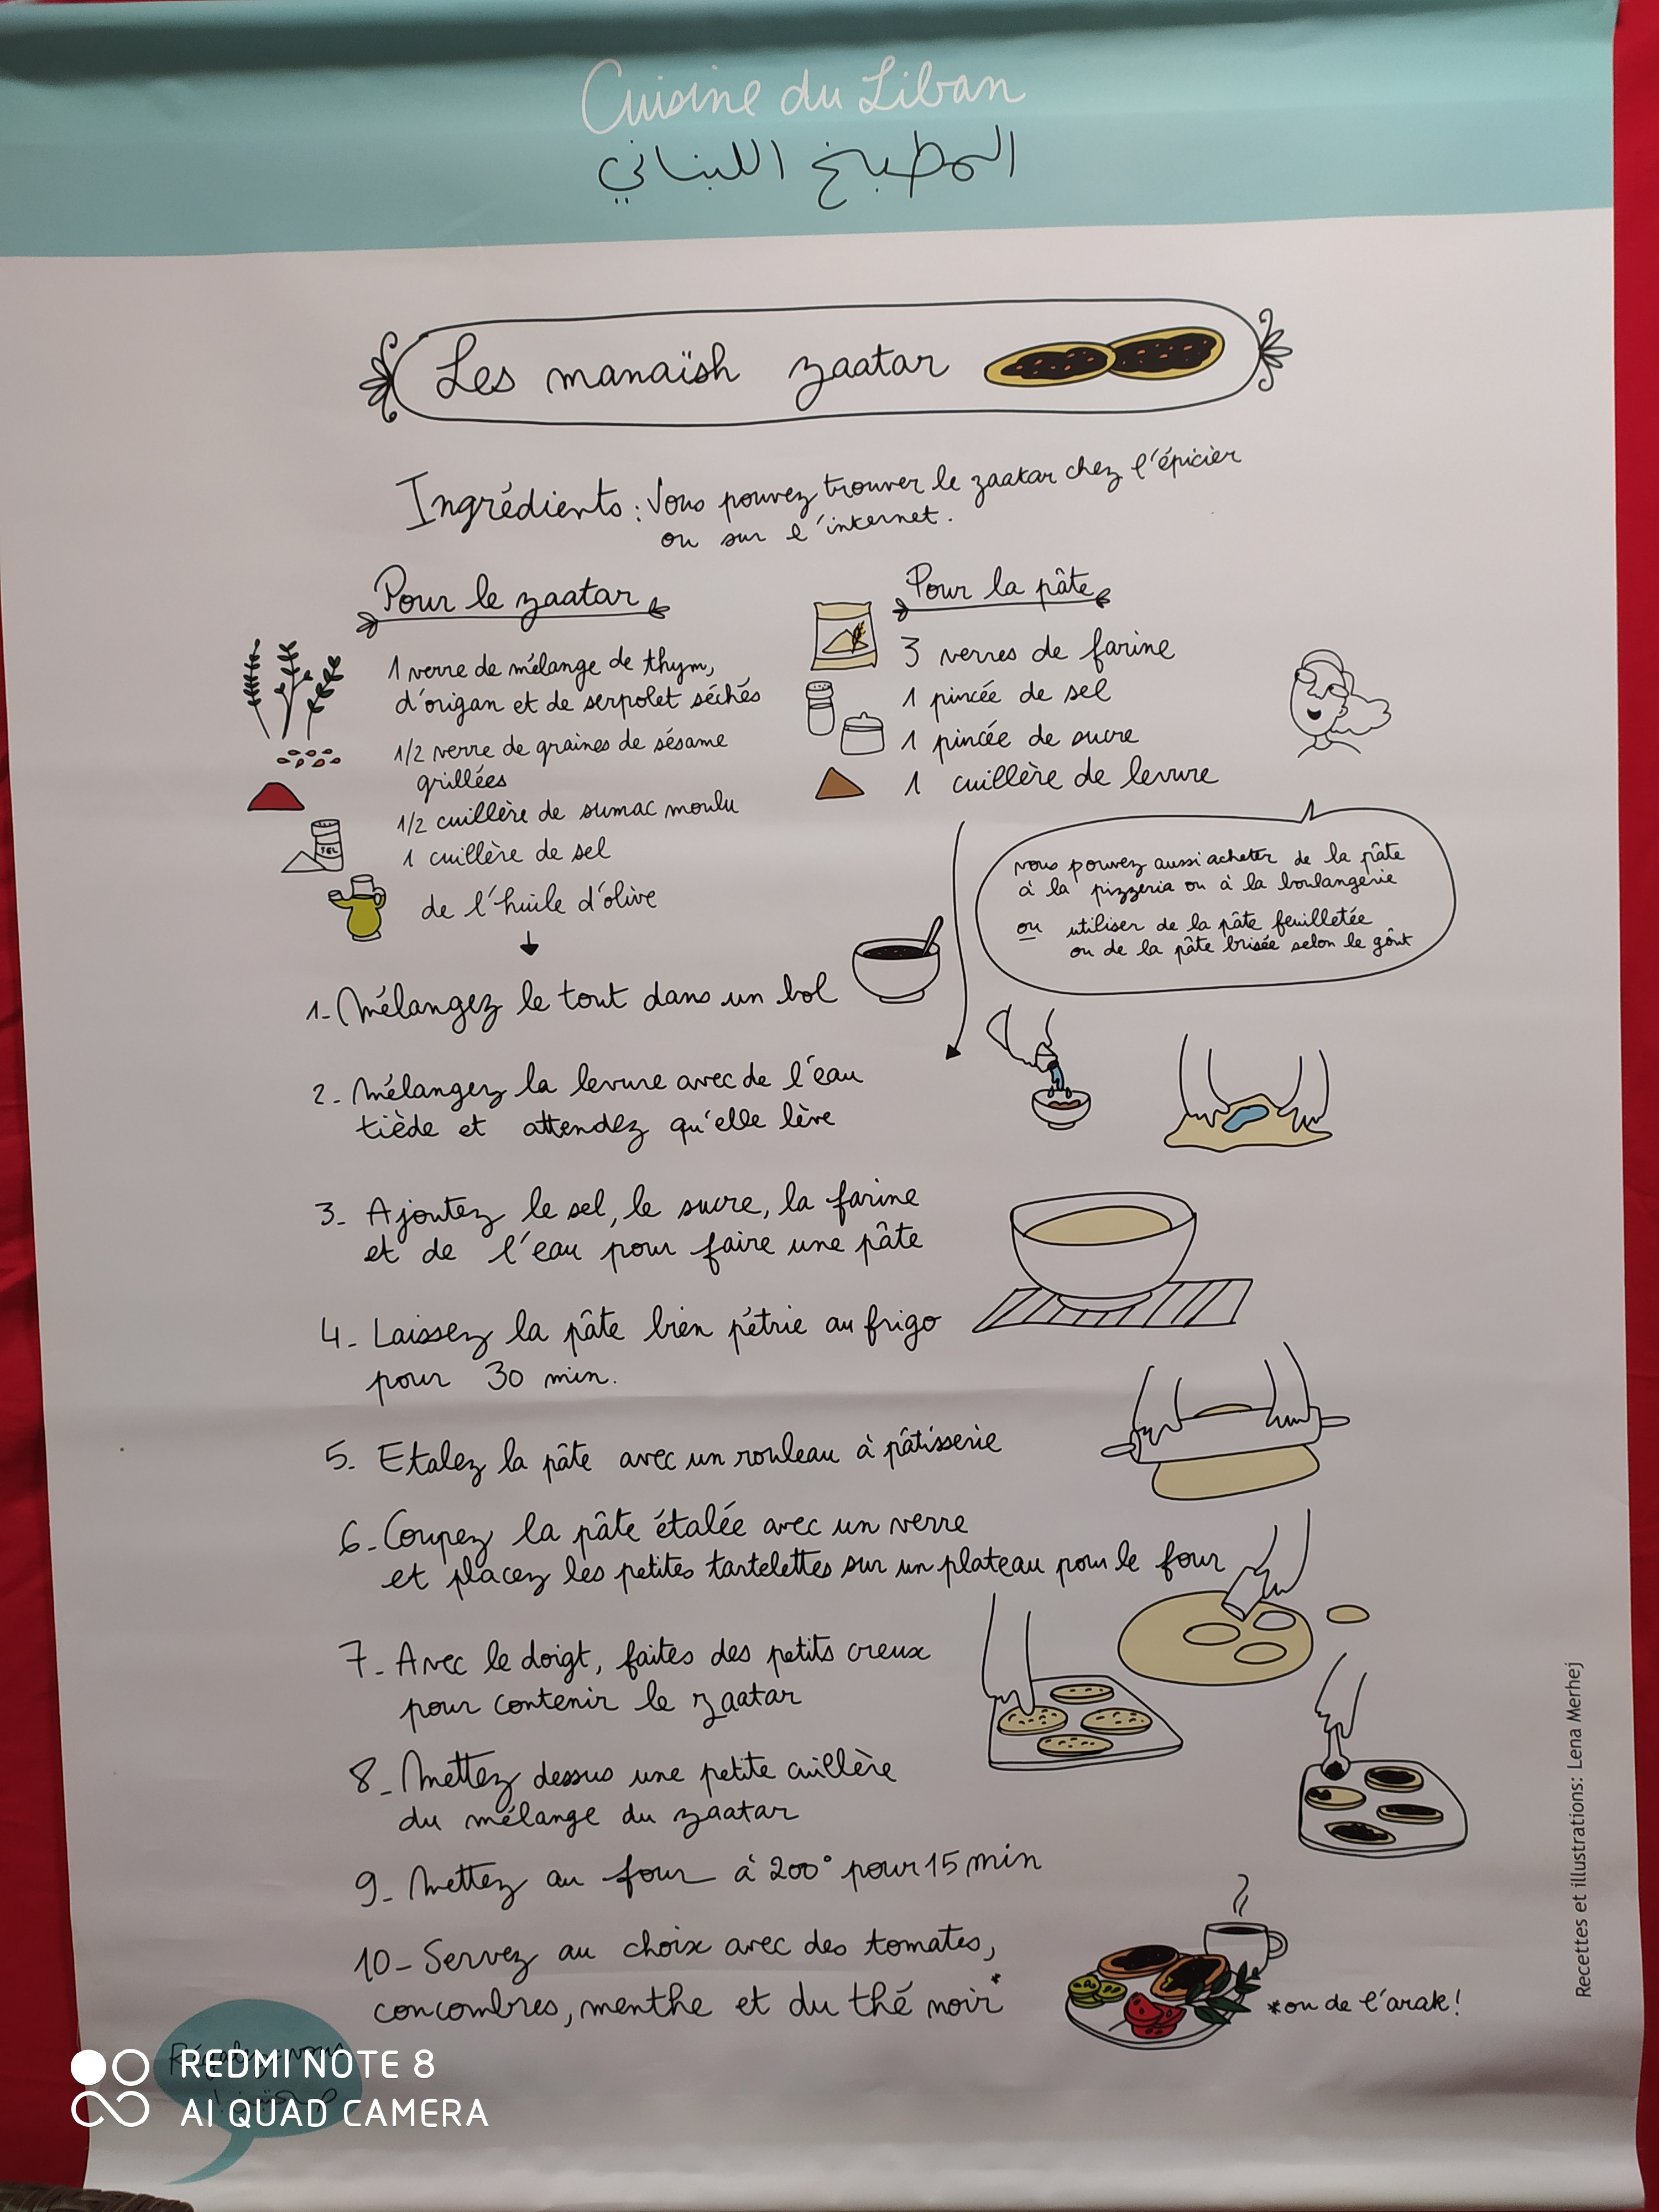 Cuisine du Liban
المطبخ اللبناني
Les manaïsh zaatar
Ingrédients : Vous pouvez trouver le zaatar chez l'épicier
ou sur l'internet.
Pour le zaatar
1 verre de mélange de thym,
d'origan et de serpolet séchés
1/2 verre de graines de sésame
grillées
1/2 cuillère de sumac moulu
1 cuillère de sel
SEL
de l'huile d'olive
Pour la pâte
3 verres de farine
1 pincée de sel
1 pincée de sucre
1 cuillère de levure
vous pouvez aussi acheter de la pâte
à la pizzeria ou à la boulangerie
ou utiliser de la pâte feuilletée
ou de la pâte brisée selon le goût
1- Mélangez le tout dans un bol
2- Mélangez la levure avec de l'eau
tiède et attendez qu'elle lève
3- Ajoutez le sel, le sucre, la farine
et de l'eau pour faire une pâte
4- Laissez la pâte bien pétrie au frigo
pour 30 min.
5. Etalez la pâte avec un rouleau à pâtisserie
6- Coupez la pâte étalée avec un verre
et placez les petites tartelettes sur un plateau pour le four
7- Avec le doigt, faites des petits creux
pour contenir le zaatar
8- Mettez dessus une petite cuillère
du mélange du zaatar
9- Mettez au four à 200° pour 15 min
10- Servez au choix avec des tomates,
concombres, menthe et du thé noir*
*ou de l'arak!
Recettes et illustrations: Lena Merhej
Régalez-vous
REDMI NOTE 8
AI QUAD CAMERA